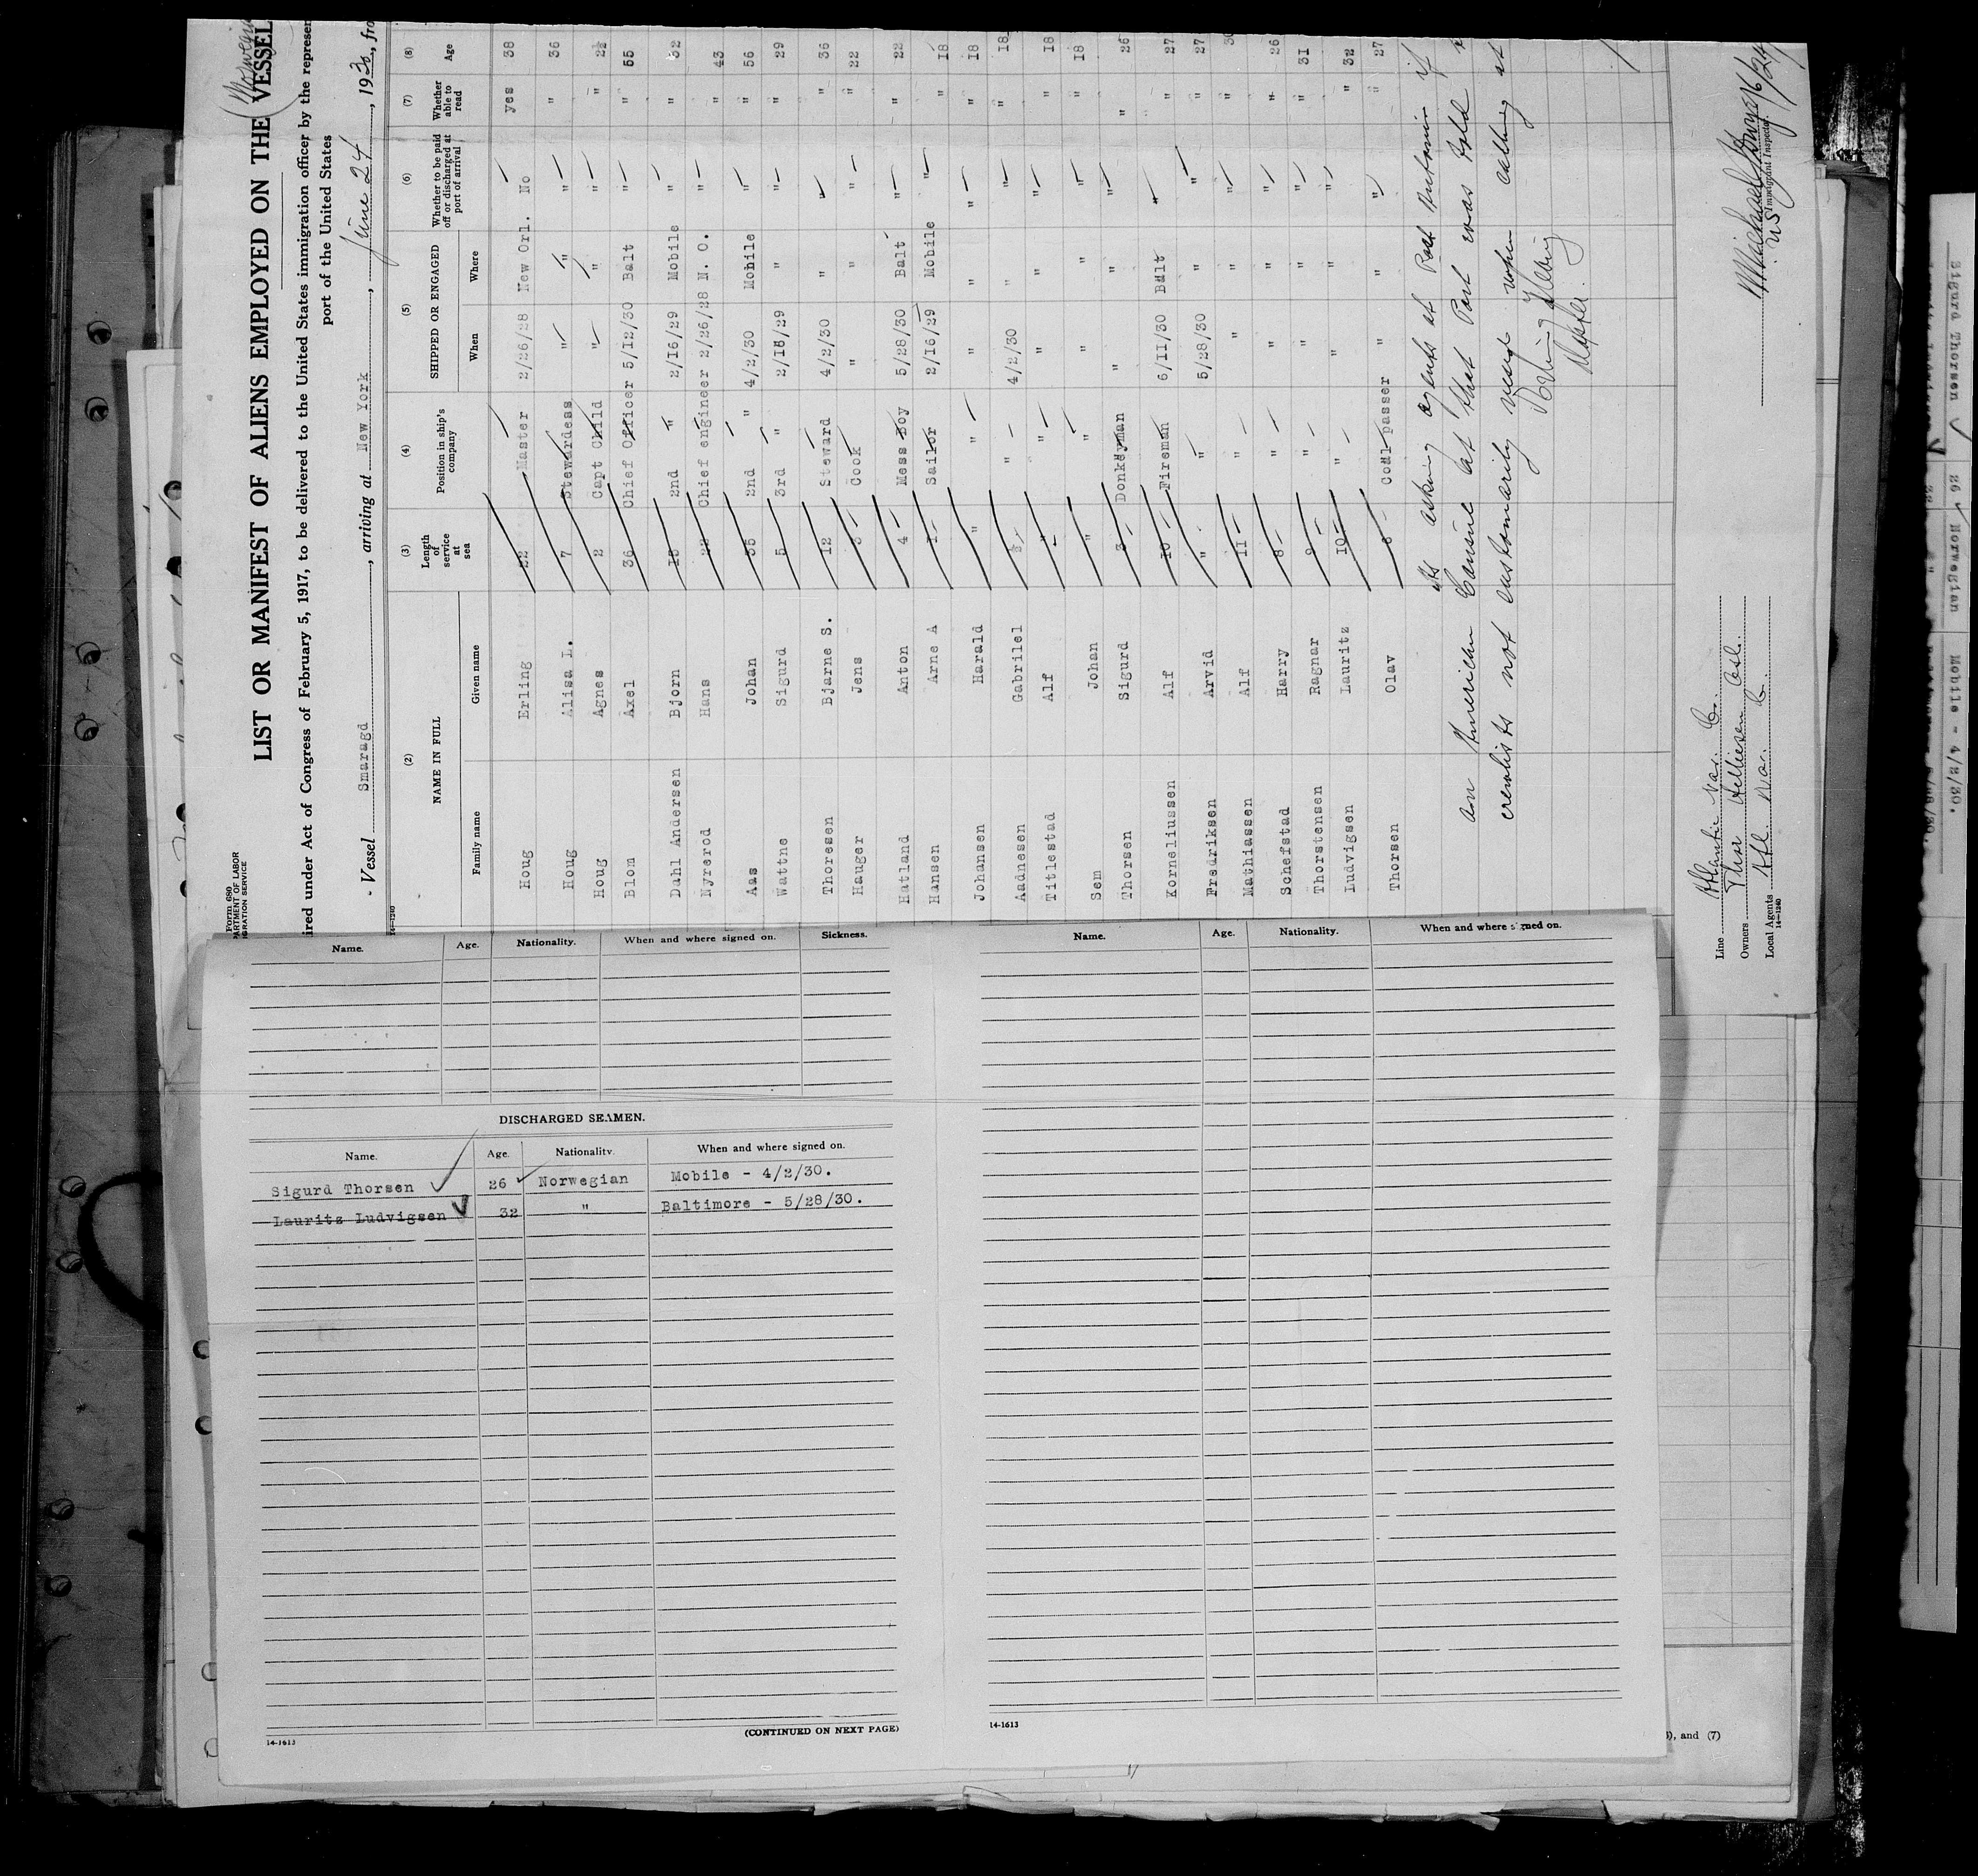 Form 680
LIST OR MANIFEST OF ALIENS EMPLOYED ON THE VESSEL
ired under Act of Congress of February 5, 1917, to be delivered to the United States immigration officer by the represen
port of the United States
Vessel Smaragd, arriving at New York, June 24, 1930, fro
14—1240
(2) (3) (4) (5) (6) (7) (8)
NAME IN FULL Length of service at sea Position in ship's company SHIPPED OR ENGAGED Whether to be paid off or discharged at port of arrival Whether able to read Age
Family name Given name When Where
Houg Erling 22 Master 2/26/28 New Orl. No yes 38
Houg Alisa L. 7 Stewardess " " " " 36
Houg Agnes 2 Capt Child " " " " 2½
Blom Axel 36 Chief Officer 5/12/30 Balt " " 55
Dahl Andersen Bjorn 15 2nd " 2/16/29 Mobile " " 32
Nyrerod Hans 22 Chief engineer 2/26/28 N. O. " " 43
Aas Johan 35 2nd " 4/2/30 Mobile " " 56
Wattne Sigurd 5 3rd " 2/16/29 " " " 29
Thoresen Bjarne S. 12 Steward 4/2/30 " " " 36
Hauger Jens 3 Cook " " " " 22
Hatland Anton 4 Mess Boy 5/28/30 Balt " " 22
Hansen Arne A 1 Sailor 2/16/29 Mobile " " 18
Johansen Harald " " " " " " 18
Aadnesen Gabrilel ½ " 4/2/30 " " " 18
Titlestad Alf " " " " " " 18
Sem Johan " " " " " " 18
Thorsen Sigurd 3 Donkeyman " " " " 26
Korneliussen Alf 10 Fireman 6/11/30 Balt " " 27
Fredriksen Arvid " " 5/28/30 " " " 27
Mathiassen Alf 11 " " " " " 30
Schefstad Harry 8 " " " " " 26
Thorstensen Ragnar 9 " " " " " 31
Ludvigsen Lauritz 10 " " " " " 32
Thorsen Olav 6 Coal passer " " " " 27
As asking agents at Port Antonio if
an American Consul at that Port was told
crewlists not customarily vesed when calling at
Master.
US Immigrant Inspector. 6/24
Line
Owners Thor
Local Agents
14—1240
Name. Age. Nationality. When and where signed on. Sickness.
DISCHARGED SEAMEN.
Name. Age. Nationality. When and where signed on.
Sigurd Thorsen 26 Norwegian Mobile - 4/2/30.
Lauritz Ludvigsen 32 " Baltimore - 5/28/30.
(CONTINUED ON NEXT PAGE)
14-1613
Name. Age. Nationality. When and where signed on.
14-1613
), and (7)
Sigurd Thorsen 26 Norwegian Mobile - 4/2/30.